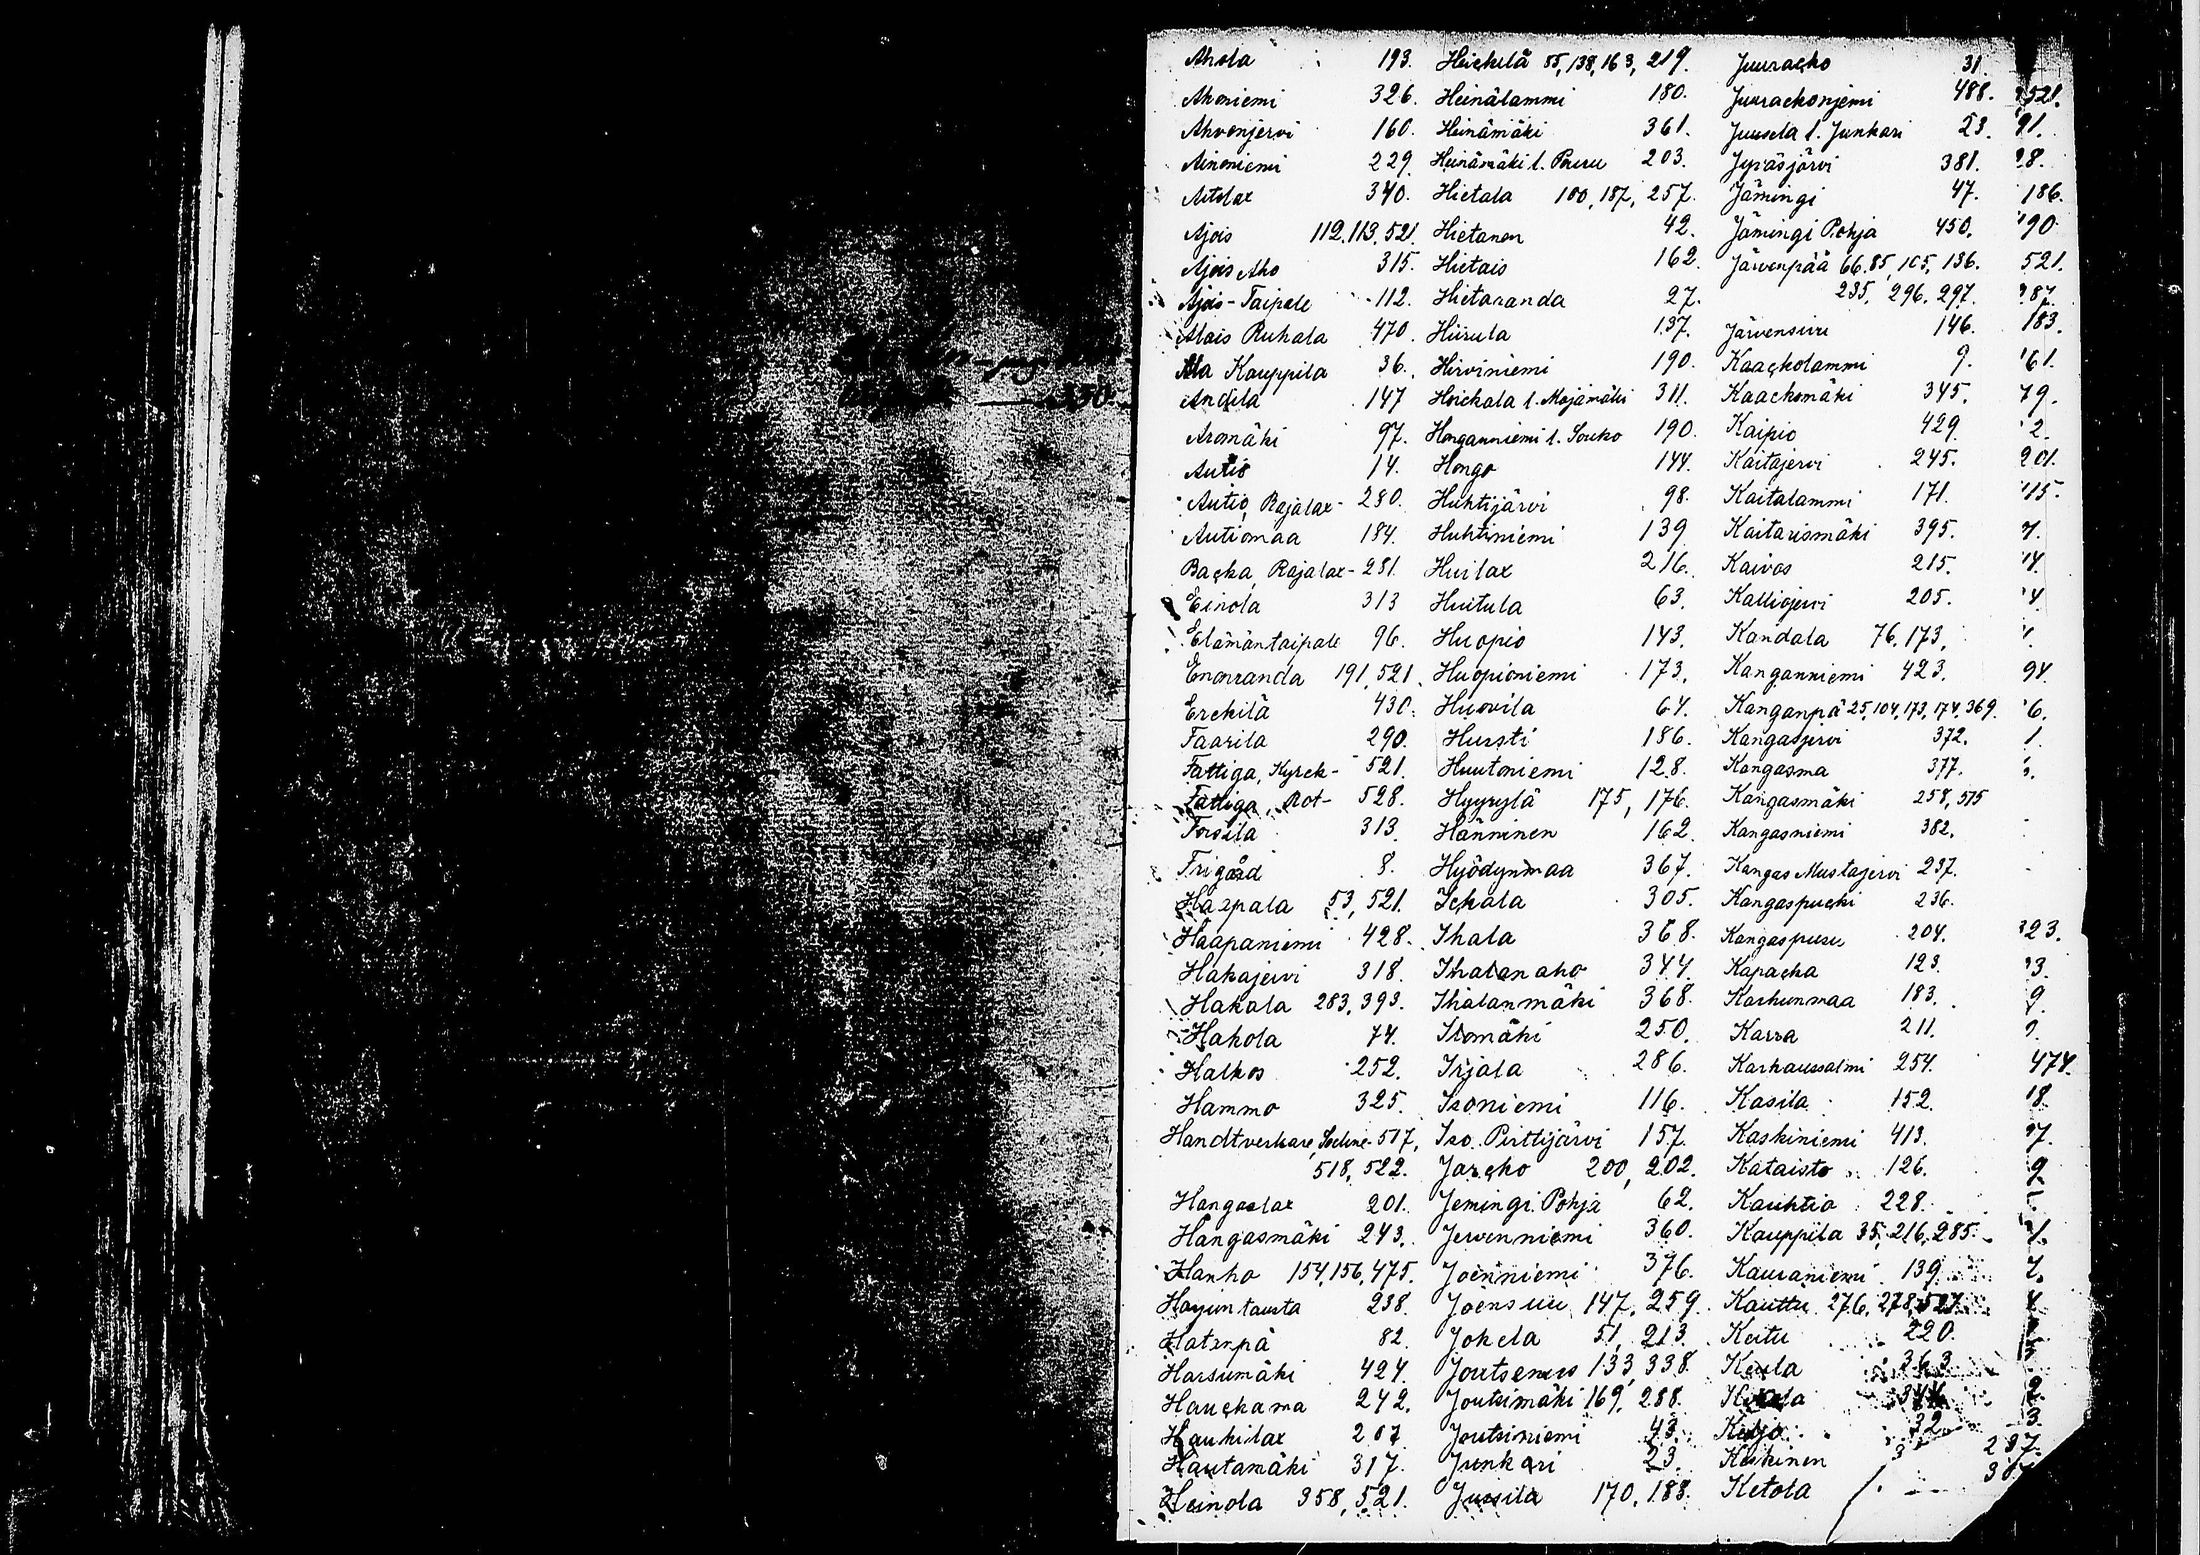 Ahola 193.
Ahoniemi 326.
Ahvenjervi 160.
Ainoniemi 229.
Aitolax 340.
Ajois 112, 113, 521.
Ajois Aho 315.
Ajois-Taipale 112.
Alois Ruhala 470.
Ala Kauppila 36.
Andila 147
Aromäki 97.
Autio 14.
Autio, Rajalax- 280.
Autiomaa 184.
Backa, Rajalax- 281.
Einola 313
Elämäntaipale 96.
Enonranda 191, 521.
Erckilä 430.
Faarila 290.
Fattiga, Kyrck- 521.
Fattiga, Rot- 528.
Forsila 313.
Frigård 8.
Haapala 53, 521.
Haapaniemi 428.
Hakajervi 318.
Hakala 283, 393.
Hakola 74.
Halkos 252.
Hammo 325.
Handtverkare, Sockne- 517,
518, 522.
Hangaslax 201.
Hangasmäki 243.
Hanho 154, 156, 475.
Harjuntausta 238.
Hatanpä 82.
Harsumäki 424.
Hauckama 242.
Haukilax 207
Hautamäki 317.
Heinola 358, 521.
Heickilä 55, 138, 163, 219.
Heinälammi 180.
Heinämäki 361.
Heinämäki l. Pouru 203.
Hietala 100, 187, 257.
Hietanen 42.
Hietais 162.
Hietaranda 27.
Hiirula 137.
Hirviniemi 190.
Hoickala l. Majamäki 311.
Honganniemi l. Souko 190.
Hongo 144.
Huhtijärvi 98.
Huhtiniemi 139
Huilax 216.
Huitula 63.
Huopio 143.
Huopioniemi 173.
Huovila 64.
Hursti 186.
Huutoniemi 128.
Hyyrylä 175, 176.
Hänninen 162.
Hyödynmaa 367.
Ickala 305.
Ihala 368.
Ihalanaho 344.
Ihalanmäki 368.
Ilomäki 250.
Irjala 286.
Isoniemi 116.
Iso Pirttijärvi 157.
Jaracko 200, 202.
Jemingi Pohja 62.
Jervenniemi 360.
Joenniemi 376.
Joensuu 147, 259.
Jokela 51, 213.
Joutsenus 133, 338.
Joutsimäki 169, 288.
Joutsiniemi 43.
Junkari 23.
Jussila 170, 188.
Juuracko 31.
Juurackoniemi 488.
Juusela l. Junkari 23.
Jyräsjärvi 381.
Jämingi 47.
Jämingi Pohja 450.
Järvenpää 66, 85, 105, 136.
235, 296, 297.
Järvensuu 146.
Kaackolammi 9.
Kaackomäki 345.
Kaipio 429.
Kaitajervi 245.
Kaitalammi 171.
Kaitarismäki 395.
Kaivos 215.
Kalliojervi 205.
Kandala 76, 173,
Kanganniemi 423.
Kanganpä 25, 104, 173, 174, 369.
Kangasjervi 372.
Kangasma 377.
Kangasmäki 258, 515
Kangasniemi 382.
Kangas Mustajervi 237.
Kangaspucki 236.
Kangaspuru 204.
Kapacka 123.
Karhunmaa 183.
Karra 211.
Karhaussalmi 254.
Kasila 152.
Kaskiniemi 413.
Kataisto 126.
Kauhtio 228.
Kauppila 35, 216, 285.
Kauraniemi 139
Kauttu 276, 278, 527.
Keitu 220.
Keula 363
Keljo 32
Keskinen
Ketola
521.
91.
28.
186.
190
521.
287.
183.
61.
79.
2.
201.
115.
7.
4.
4
94.
6.
1.
323.
93.
9.
474.
18
97.
9.
7.
2.
3.
237.
330.